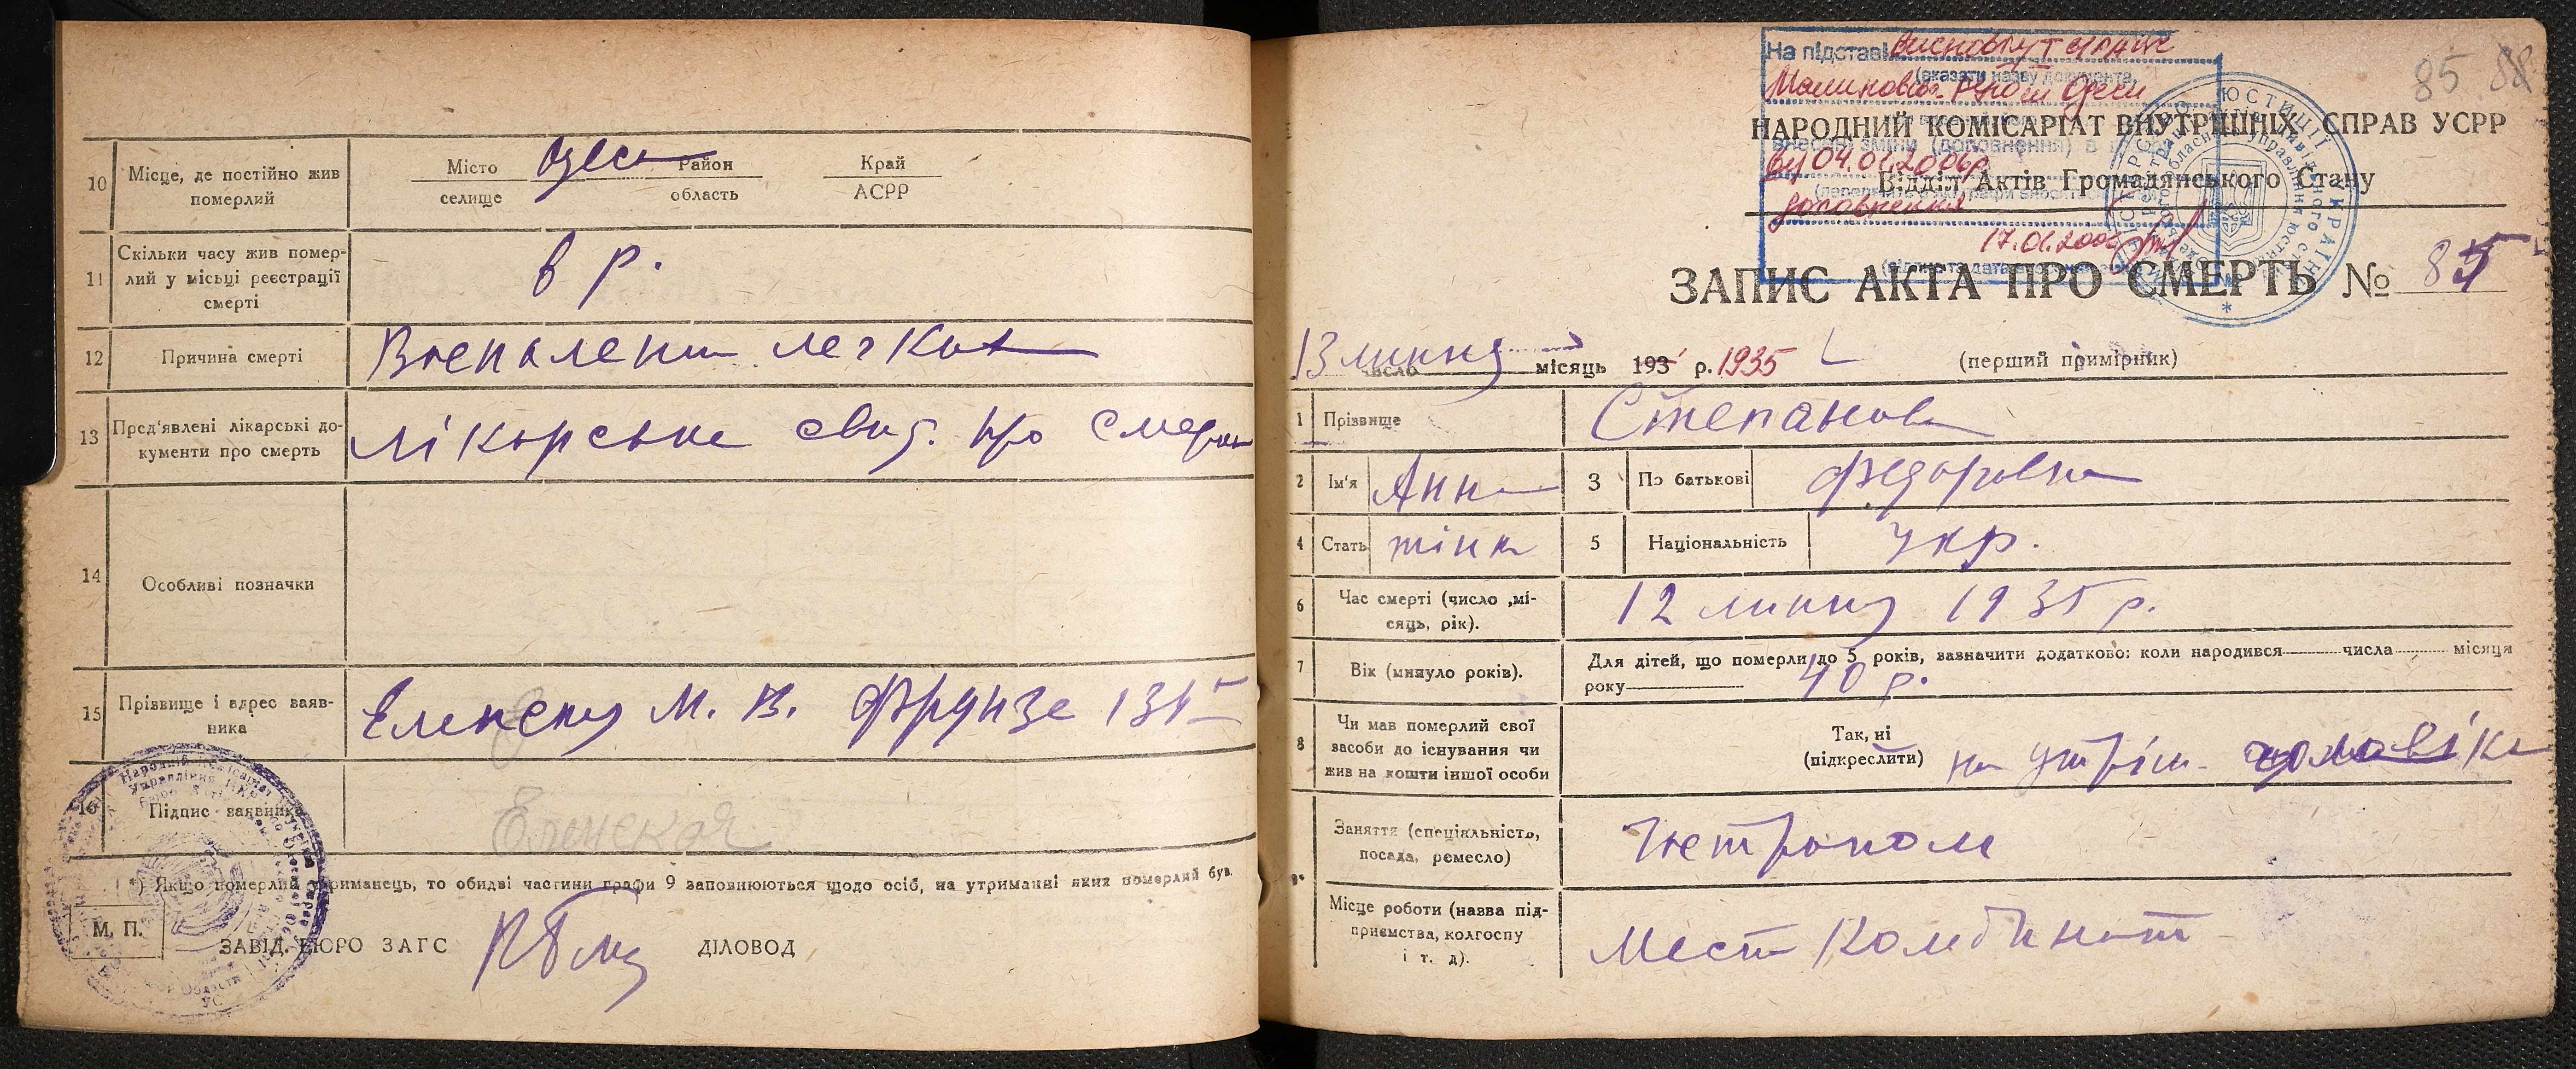 10 Місце, де постійно жив
померлий
Місто
селище
Одеса
Район
область
Край
АСРР
11 Скільки часу жив помер-
лий у місьці реєстрації
смерті
6 р.
12 Причина смерті
Воспаление легких
13 Пред'явлені лікарські до-
кументи про смерть
лікарське свид. про смерть
14 Особливі позначки
15 Прізвище і адрес заяв-
ника
М. В. Фрунзе
16 Підпис заявника
Еленская
*) Якщо померлий утриманець, то обидві частини графи 9 заповнюються щодо осіб, на утриманні яких померлий був.
М. П.
ЗАВІД. БЮРО ЗАГС
ДІЛОВОД
85
На підставі висновку
(вказати назву документа,
Малиновск. Одеси
НАРОДНИЙ КОМІСАРІАТ ВНУТРІШНІХ СПРАВ УСРР
внесені зміни (доповнення) в
від 04.01.2006р
Відділ Актів Громадянського Стану
доповнення
17.01.2006
ЗАПИС АКТА ПРО СМЕРТЬ № 85
13 липня
число
місяць 193 р. 1935
(перший примірник)
1 Прізвище
Степанова
2 Ім'я
Анна
3 По батькові
Федоровна
4 Стать
жінка
5 Національність
укр.
6 Час смерті (число ,мі-
сяць, рік).
12 липня 1935 р.
7 Вік (минуло років).
Для дітей, що померли до 5 років, зазначити додатково: коли народився числа місяця
року
40 р.
8 Чи мав померлий свої
засоби до існування чи
жив на кошти іншої особи
Так, ні
(підкреслити)
на утрім. чоловіка
9* Заняття (спеціяльність,
посада, ремесло)
Місце роботи (назва під-
приємства, колгоспу
і т. д).
Мест Комбинат